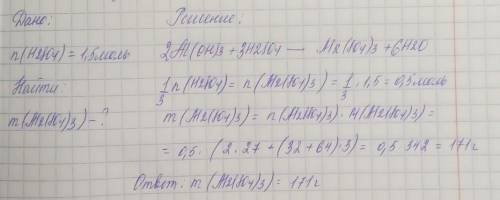 Дано:
Решение:
n(H2SO4) = 1,5 моль
2Al(OH)3 + 3H2SO4 — Al2(SO4)3 + 6H2O
Найти:
1/3 n(H2SO4) = n(Al2(SO4)3) = 1/3 · 1,5 = 0,5 моль
m(Al2(SO4)3) - ?
m(Al2(SO4)3) = n(Al2(SO4)3) · M(Al2(SO4)3) =
= 0,5 · (2 · 27 + (32 + 64) · 3) = 0,5 · 342 = 171 г
Ответ: m(Al2(SO4)3) = 171 г